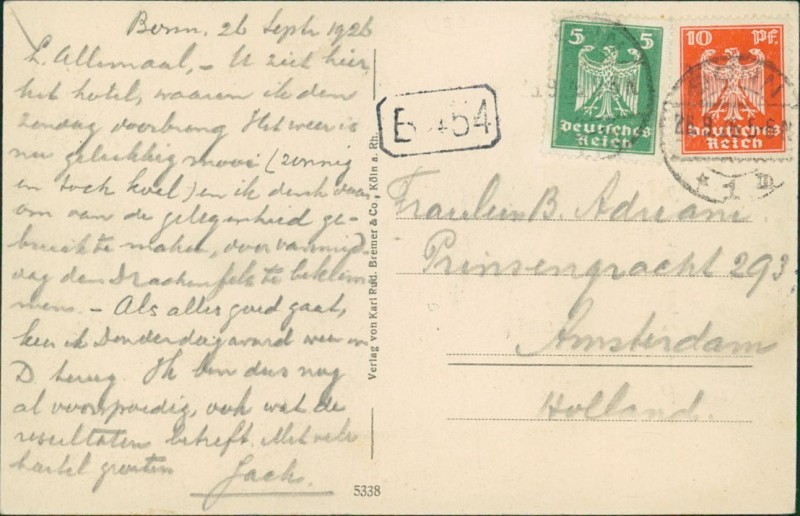 Bonn, 26 Sept 1926
L. Allemaal, – U ziet hier
het hotel, waarin ik den
Zondag doorbreng Het weer is
nu gelukkig mooi (zonnig
en toch koel) en ik denk daar
om van de gelegenheid ge-
bruik te maken, door vanmid
dag den Drachenfels te beklim
men. – Als alles goed gaat,
ben ik Donderdagavond weer in
D. terug. Ik ben dus nog
al voorspoedig, ook wat de
resultaten betreft. Met vele
hartel groeten Jack.
Verlag von Karl Rud. Bremer & Co., Köln a. Rh.
5338
5 5
Deutsches
Reich
10 Pf.
Deutsches
Reich
Fraulein B. Adriani.
Prinsengracht 293
Amsterdam
Holland.